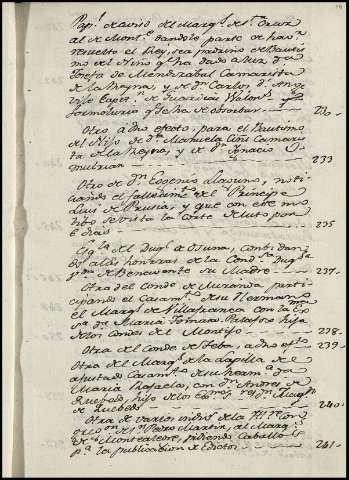 Pap.l de aviso del Marq.s de S.ta Cruz
al de Mont.e dandole parte de haver
resuelto el Rey, sea padrino de Bautis
mo del Niño q.e ha dado a luz D.a
Josefa de Mendizabal Camarista
de la Reyna, y de D.n Carlos D. Ange
Capit.n de Guardias Walonas y
formulario q.e se ha de observar 230.
Otro a dho efecto, para el Bautismo
del Hijo de D.a Manuela Camaris
ta de la Reyna, y de D.n Ignacio O
mulrian 233
Otro de D.n Eugenio Llaguno, noti
ciando el fallecim.to del Principe
Luis de Prusia, y que con este mo
tivo se vista la Corte de luto por
6 dias 235
Esq.la del Duq.e de Osuna, convidan
do a las honras de la Cond.sa Duq.sa
de Benavente su Madre 237.
Otra del Conde de Miranda, parti
cipando el Casam.to de su Hermano
el Marq.s de Villafranca con la
D.a Maria Tomasa Palafox hija
de los Condes del Montijo 238.
Otra del Conde de Teba, a dho ef.to 239.
Otra del Marq.s de la Lapilla de
ajustado Casam.to de su herm.a D.a
Maria Rafaela, con D.n Andres de
Quebedo, hijo de los
de Quebedo 240.
Otra de varios indiv.s de la
de S.n Pedro Martir, al Marq.s
de Montealegre, pidiendo Caballos
p.a la publicacion de Edictos 241.